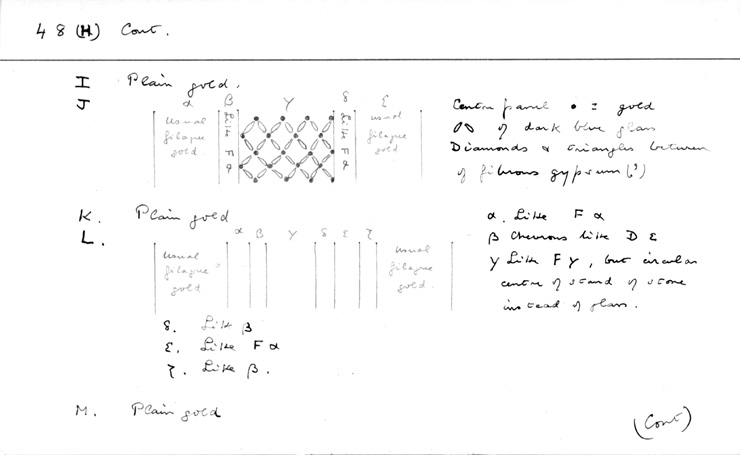 48 (H) Cont.
I Plain gold.
J
α β γ δ ε
usual filagree gold
Like F α
Like F α
usual filagree gold
Centre panel • = gold
of dark blue glass
Diamonds & triangles between
of fibrous gypsum (?)
K. Plain gold
L.
α β γ δ ε ζ
usual filagree gold
usual filagree gold.
α. Like F α
β Chevrons like D ε
γ Like F γ, but circular
centre of stand of stone
instead of glass.
δ. Like β
ε. Like F α
ζ. Like β.
M. Plain gold
(Cont)